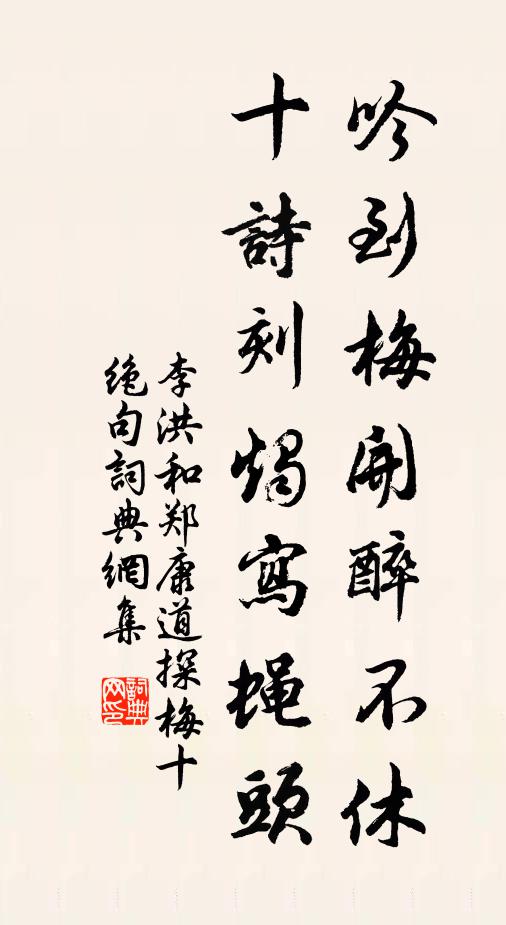 吟到梅開醉不休
十詩刻燭寫蝇頭
李洪和郑康道探梅十
绝句詞典網集
詞典
网印